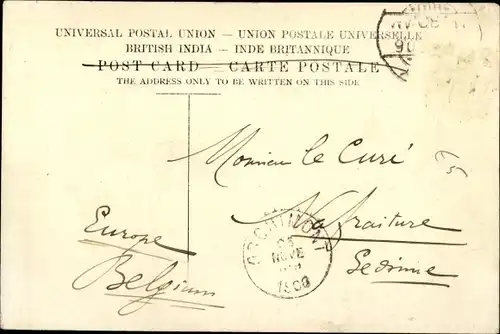 UNIVERSAL POSTAL UNION — UNION POSTALE UNIVERSELLE
BRITISH INDIA — INDE BRITANNIQUE
POST CARD — CARTE POSTALE
THE ADDRESS ONLY TO BE WRITTEN ON THIS SIDE
Monsieur le Curé
Nafraiture
Gedinne
Europe
Belgium
ORCHIMONT
NOVE